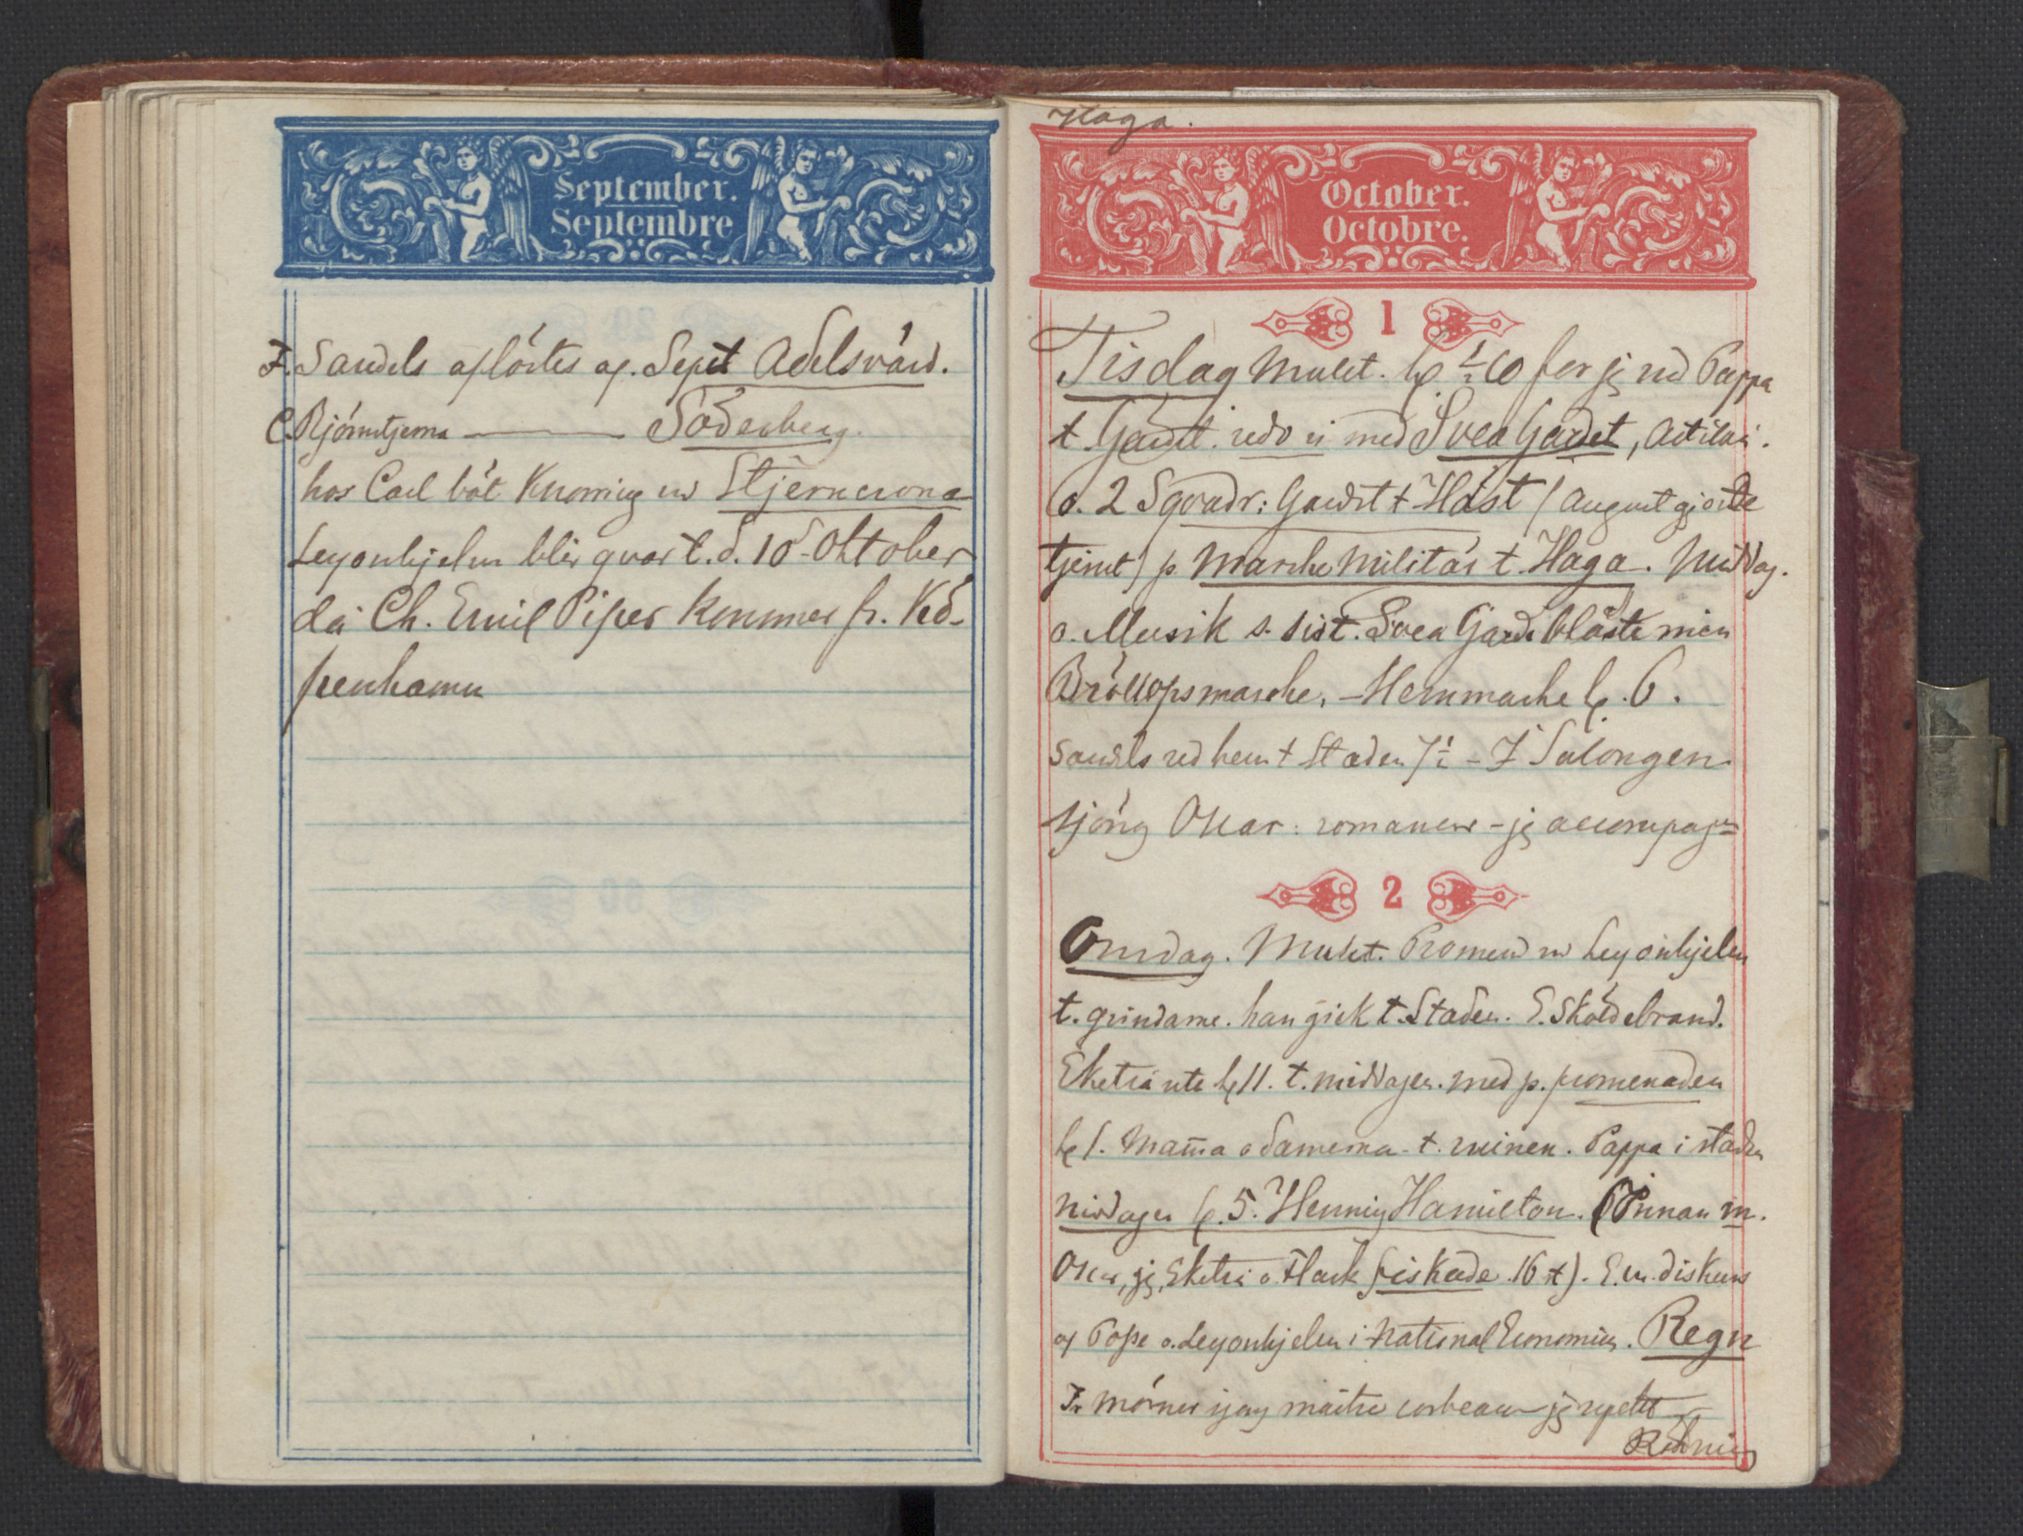 September.
Septembre
F. Sandels aflöstes af. Sept Adelsvärd.
C. Björnstjerna ——— Söderberg.
hos Carl böt Knorring m Stjerncrona
Leyonhjelm blir qvar t. d. 10 Oktober
då Ch. Emil Piper kommer fr. Kö-
penhamn
Haga.
October.
Octobre.
1
Tisdag Mulet. kl ½10 for jg ned Pappa
t. Gärdt. redo vi med Svea Gardet, Artilri.
o. 2 Sqvadr: Gardet t Häst / August gjorde
tjenst) p. Marche Militär t. Haga. Middag.
o. Musik s. sist. Svea Garde blåste min
Bröllopsmarche, Hemmarche kl. 6.
Sandels red hem t Staden 7½ - I Salongen
sjöng Oscar: romanser - jg accompagn
2
Onsdag. Mulet. Promen m Leyonhjelm
t. grindarne. han gick t. Staden. E. Sköldebrand.
Eketrä ute kl 11. t. middagen. med p. promenaden
kl 1. Mamma o damerna t. ruinen. Pappa i staden
Middagen kl. 5. Henning Hamilton. (Innan m.
Oscar, jg, Eketrä o. Flack fiskade 16 st). E.m. diskurs
af Pope o. Leyonhjelm i National Economien. Regn
Fr Mörner sjöng maitre corbeau jg